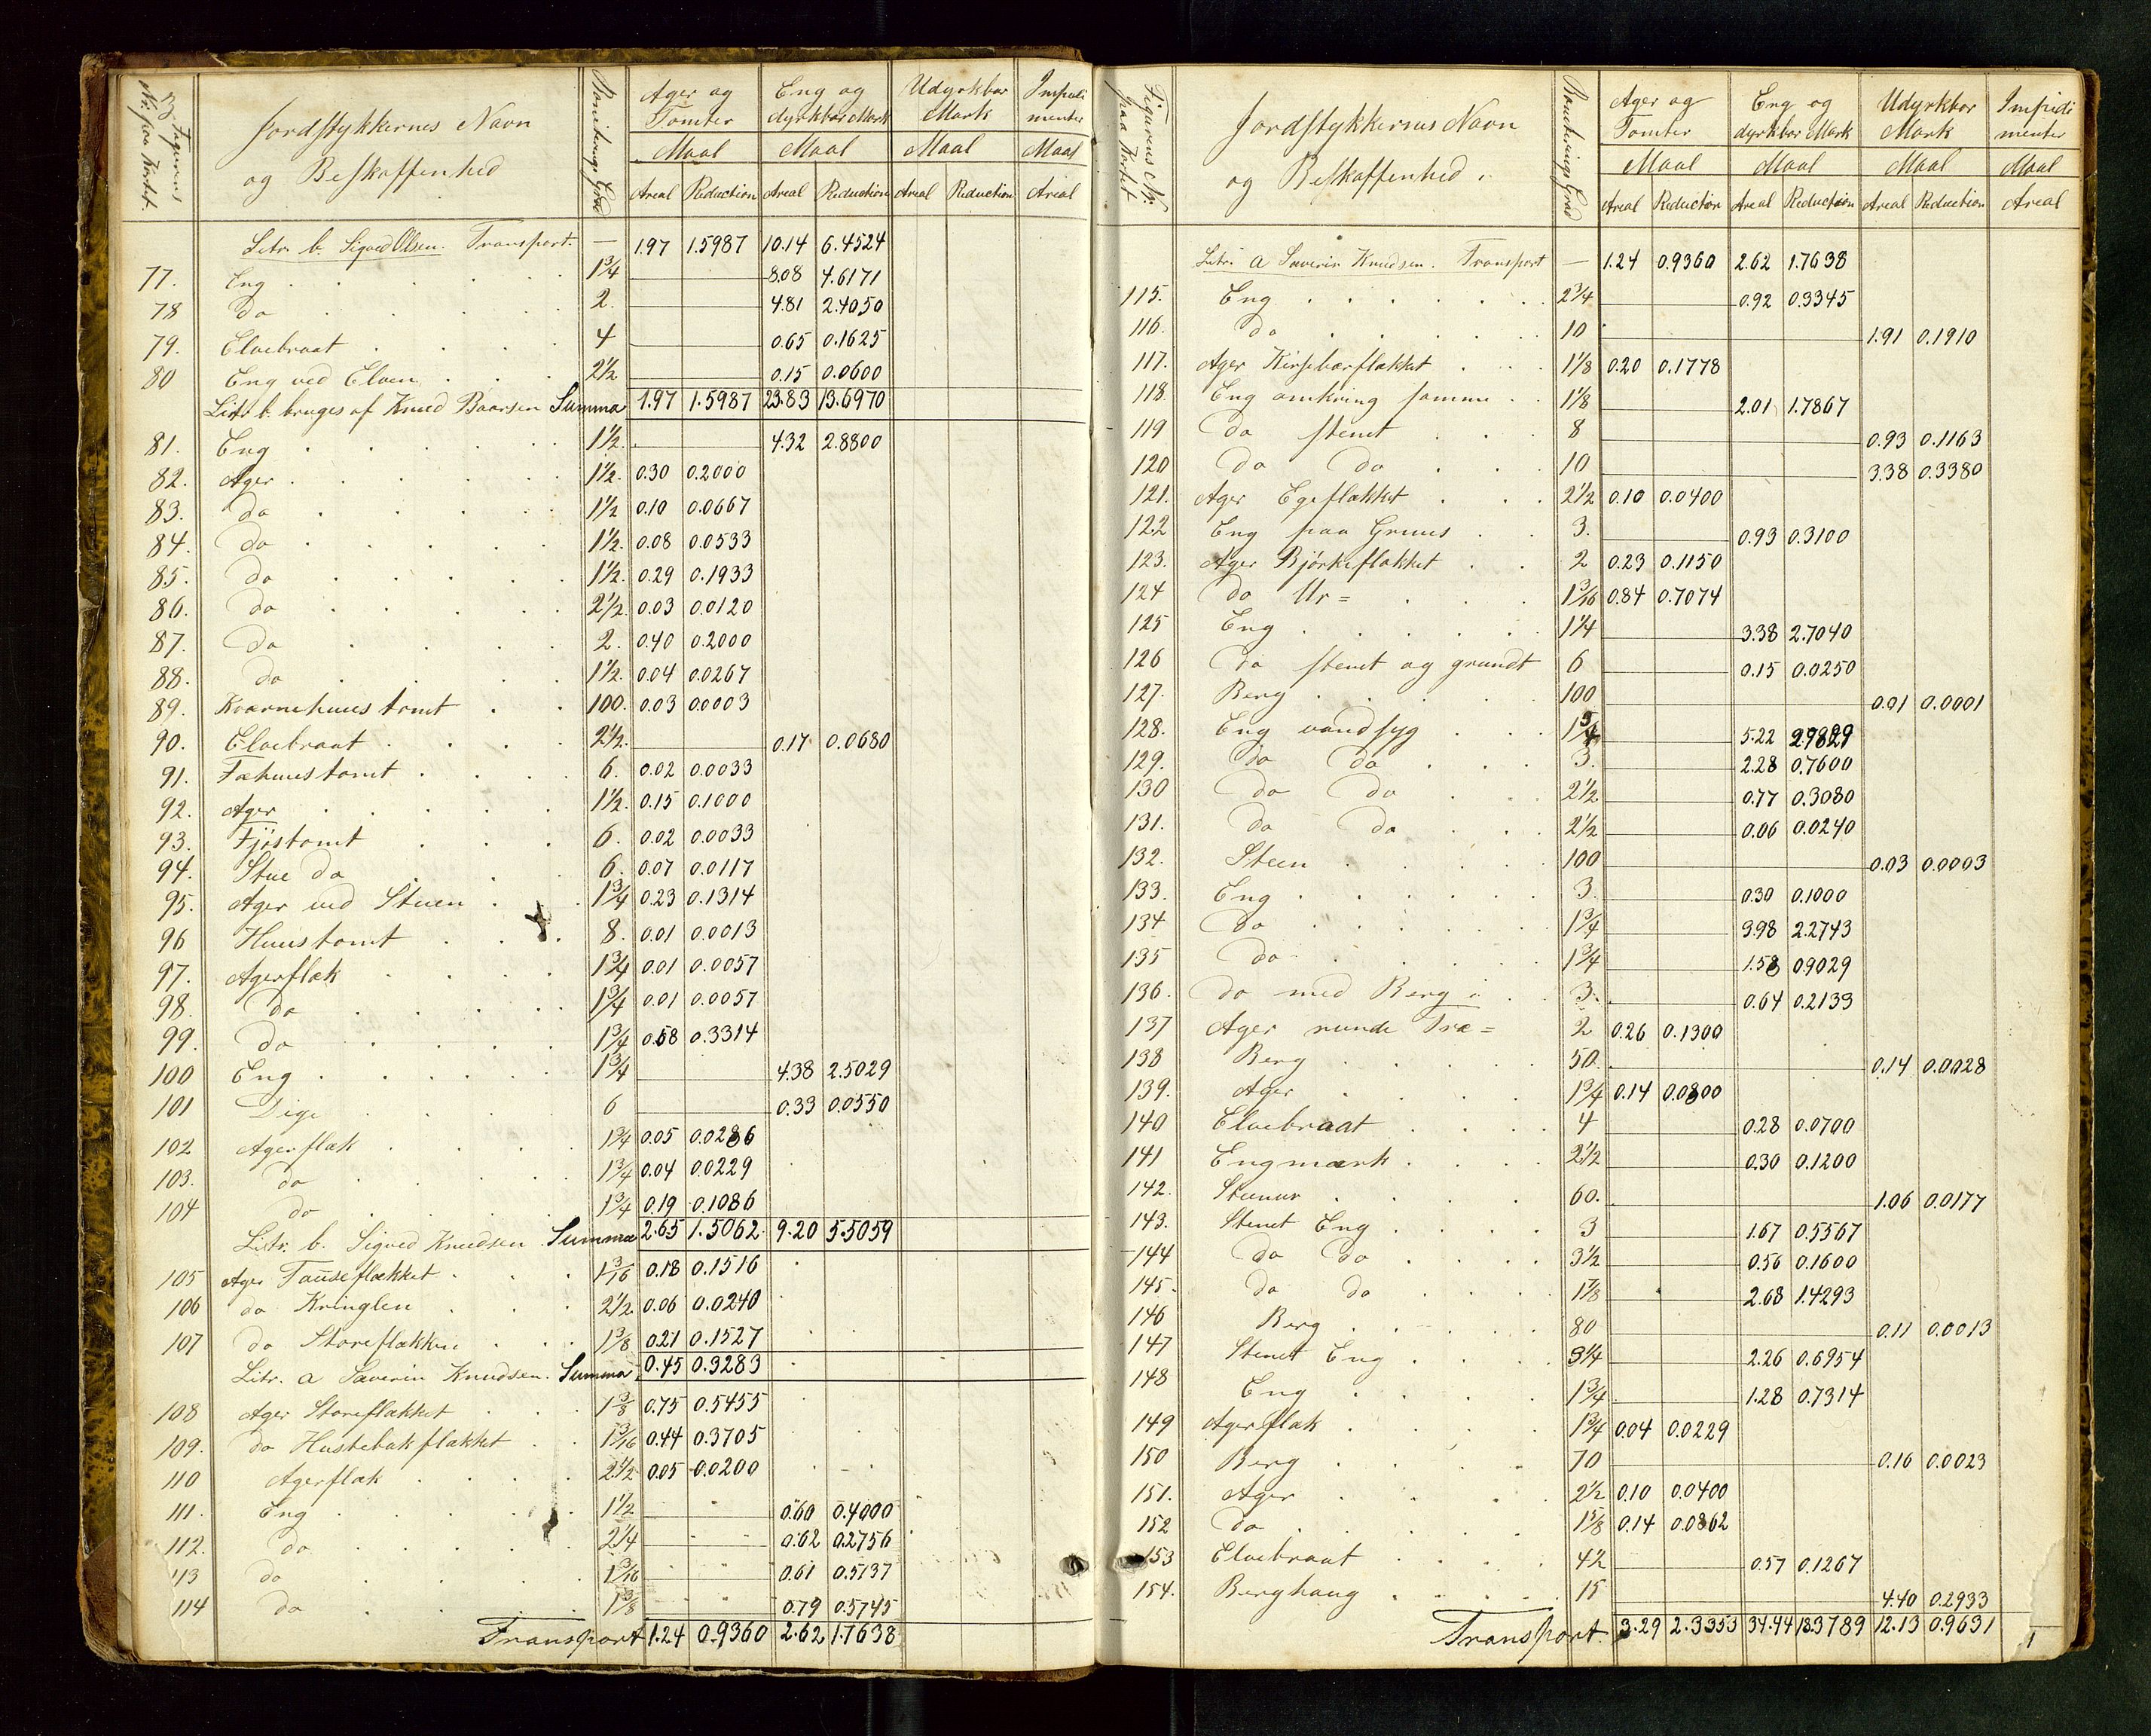 Figurens Nr. paa Kortet.
Jordstykkernes Navn og Beskaffenhed
Boniterings Grad
Ager og Tomter
Eng og dyrkbar Mark
Udyrkbar Mark
Impedimenter
Maal Maal Maal Maal
Areal Reduction Areal Reduction Areal Reduction Areal
Litr. b. Sigved Olsen. Transport. — 1.97 1.5987 10.14 6.4524
77. Eng 1¾ 8.08 4.6171
78 do 2. 4.81 2.4050
79. Elvebraat 4 0.65 0.1625
80 Eng ved Elven 2½ 0.15 0.0600
Litr. b. bruges af Knud Baarsen Summa 1.97 1.5987 23.83 13.6970
81. Eng 1½. 4.32 2.8800
82. Ager 1½. 0.30 0.2000
83. do 1½ 0.10 0.0667
84. do 1½. 0.08 0.0533
85. do 1½. 0.29 0.1933
86. do 2½. 0.03 0.0120
87. do 2. 0.40 0.2000
88. do 1½. 0.04 0.0267
89. Kværnehuustomt 100. 0.03 0.0003
90. Elvebraat 2½. 0.17 0.0680
91. Fæhuustomt 6. 0.02 0.0033
92. Ager 1½. 0.15 0.1000
93. Fjøstomt 6. 0.02 0.0033
94. Stue do 6. 0.07 0.0117
95. Ager ved Stuen 1¾ 0.23 0.1314
96 Huustomt 8. 0.01 0.0013
97. Agerflæk 1¾ 0.01 0.0057
98. do 1¾ 0.01 0.0057
99. do 1¾ 0.58 0.3314
100 Eng 1¾ 4.38 2.5029
101 Dige 6 0.33 0.0550
102 Agerflæk 1¾ 0.05 0.0286
103. do 1¾ 0.04 0.0229
104 do 1¾ 0.19 0.1086
Litr. b. Sigved Knudsen Summa 2.65 1.5062 9.20 5.5059
105 Ager Tauseflækket 1 3/16 0.18 0.1516
106 do Kringlen 2½ 0.06 0.0240
107 do Storeflækken 1⅜ 0.21 0.1527
Litr. a Saverin Knudsen. Summa 0.45 0.3283
108 Ager Storeflækket 1⅜ 0.75 0.5455
109. do Hustebakflækket 1 3/16 0.44 0.3705
110 Agerflæk 2½ 0.05 0.0200
111. Eng 1½ 0.60 0.4000
112. do 2¼ 0.62 0.2756
113 do 1 3/16 0.61 0.5137
114 do 1⅜ 0.79 0.5745
Transport 1.24 0.9360 2.62 1.7638
Figurens Nr. paa Kortet
Jordstykkernes Navn og Beskaffenhed
Boniterings Grad
Ager og Tomter
Eng og dyrkbar Mark
Udyrkbar Mark
Impedimenter
Maal Maal Maal Maal
Areal Reduction Areal Reduction Areal Reduction Areal
Litr. a Saverin Knudsen. Transport — 1.24 0.9360 2.62 1.7638
115. Eng 2¾ 0.92 0.3345
116. do 10 1.91 0.1910
117. Ager Kirsebærflækket 1⅛ 0.20 0.1778
118. Eng omkring samme 1⅛ 2.01 1.7867
119 do stenet 8 0.93 0.1163
120 do do 10 3.38 0.3380
121. Ager Egeflækket 2½ 0.10 0.0400
122 Eng paa Gruus 3. 0.93 0.3100
123. Ager Bjørkeflækket 2 0.23 0.1150
124 do Ur= 1 3/16 0.84 0.7074
125 Eng 1¼ 3.38 2.7040
126 do stenet og grundt 6 0.15 0.0250
127. Berg 100 0.01 0.0001
128. Eng vandsyg 1¾ 5.22 2.9829
129. do do 3. 2.28 0.7600
130 do do 2½ 0.77 0.3080
131. do do 2½ 0.06 0.0240
132. Steen 100 0.03 0.0003
133. Eng 3. 0.30 0.1000
134 do 1¾ 3.98 2.2743
135 do 1¾ 1.58 0.9029
136. do med Berg i 3. 0.64 0.2133
137 Ager runde Træ= 2 0.26 0.1300
138 Berg 50. 0.14 0.0028
139. Ager 1¾ 0.14 0.0800
140 Elvebraat 4 0.28 0.0700
141 Engmark 2½ 0.30 0.1200
142. Steenur 60. 1.06 0.0177
143. Stenet Eng 3 1.67 0.5567
144 do do 3½ 0.56 0.1600
145. do do 1⅞ 2.68 1.4293
146 Berg 80 0.11 0.0013
147 Stenet Eng 3¼ 2.26 0.6954
148 Eng 1¾ 1.28 0.7314
149 Agerflæk 1¾ 0.04 0.0229
150 Berg 70 0.16 0.0023
151. Ager 2½ 0.10 0.0400
152 do 1⅝ 0.14 0.0862
153 Elvebraat 4½ 0.57 0.1267
154. Berghaug 15 4.40 0.2933
Transport. 3.29 2.3353 34.44 18.3789 12.13 0.9631